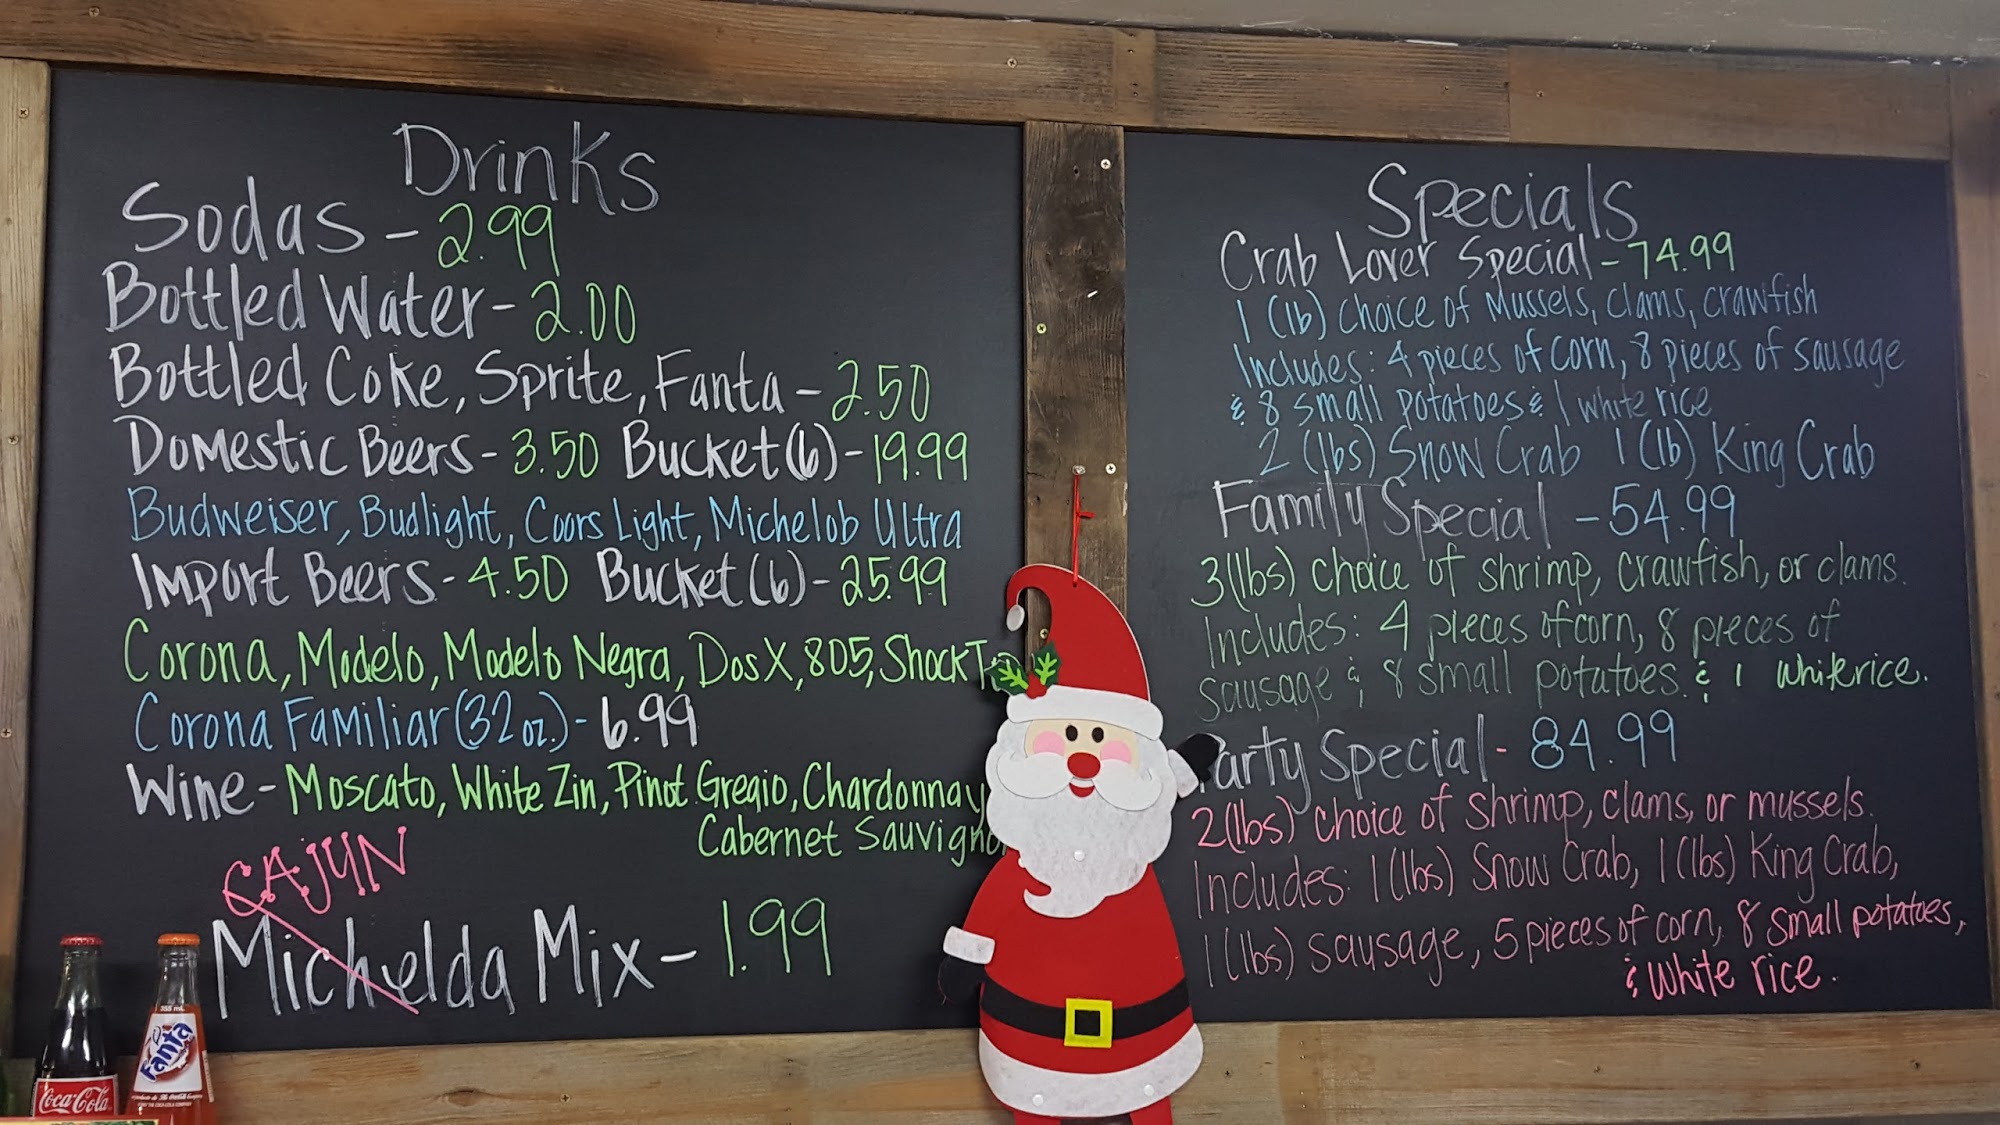 Drinks
Sodas - 2.99
Bottled Water - 2.00
Bottled Coke, Sprite, Fanta - 2.50
Domestic Beers - 3.50 Bucket (6) - 19.99
Budweiser, Budlight, Coors Light, Michelob Ultra
Import Beers - 4.50 Bucket (6) - 25.99
Corona, Modelo, Modelo Negra, Dos X, 805, Shock
Corona Familiar (32 oz.) - 6.99
Wine - Moscato, White Zin, Pinot Gregio, Chardonnay
Cabernet Sauvigno
CAJUN
Michelda Mix - 1.99
Specials
Crab Lover Special - 74.99
1 (lb) choice of Mussels, clams, crawfish
Includes: 4 pieces of corn, 8 pieces of sausage
& 8 small potatoes & 1 white rice
2 (lbs) Snow Crab 1 (lb) King Crab
Family Special - 54.99
3 (lbs) choice of shrimp, crawfish, or clams.
Includes: 4 pieces of corn, 8 pieces of
sausage & 8 small potatoes & 1 white rice.
arty Special - 84.99
2 (lbs) choice of shrimp, clams, or mussels.
Includes: 1 (lbs) Snow Crab, 1 (lbs) King Crab,
1 (lbs) sausage, 5 pieces of corn, 8 small potatoes,
& white rice.
Coca-Cola
355 mL
Fanta